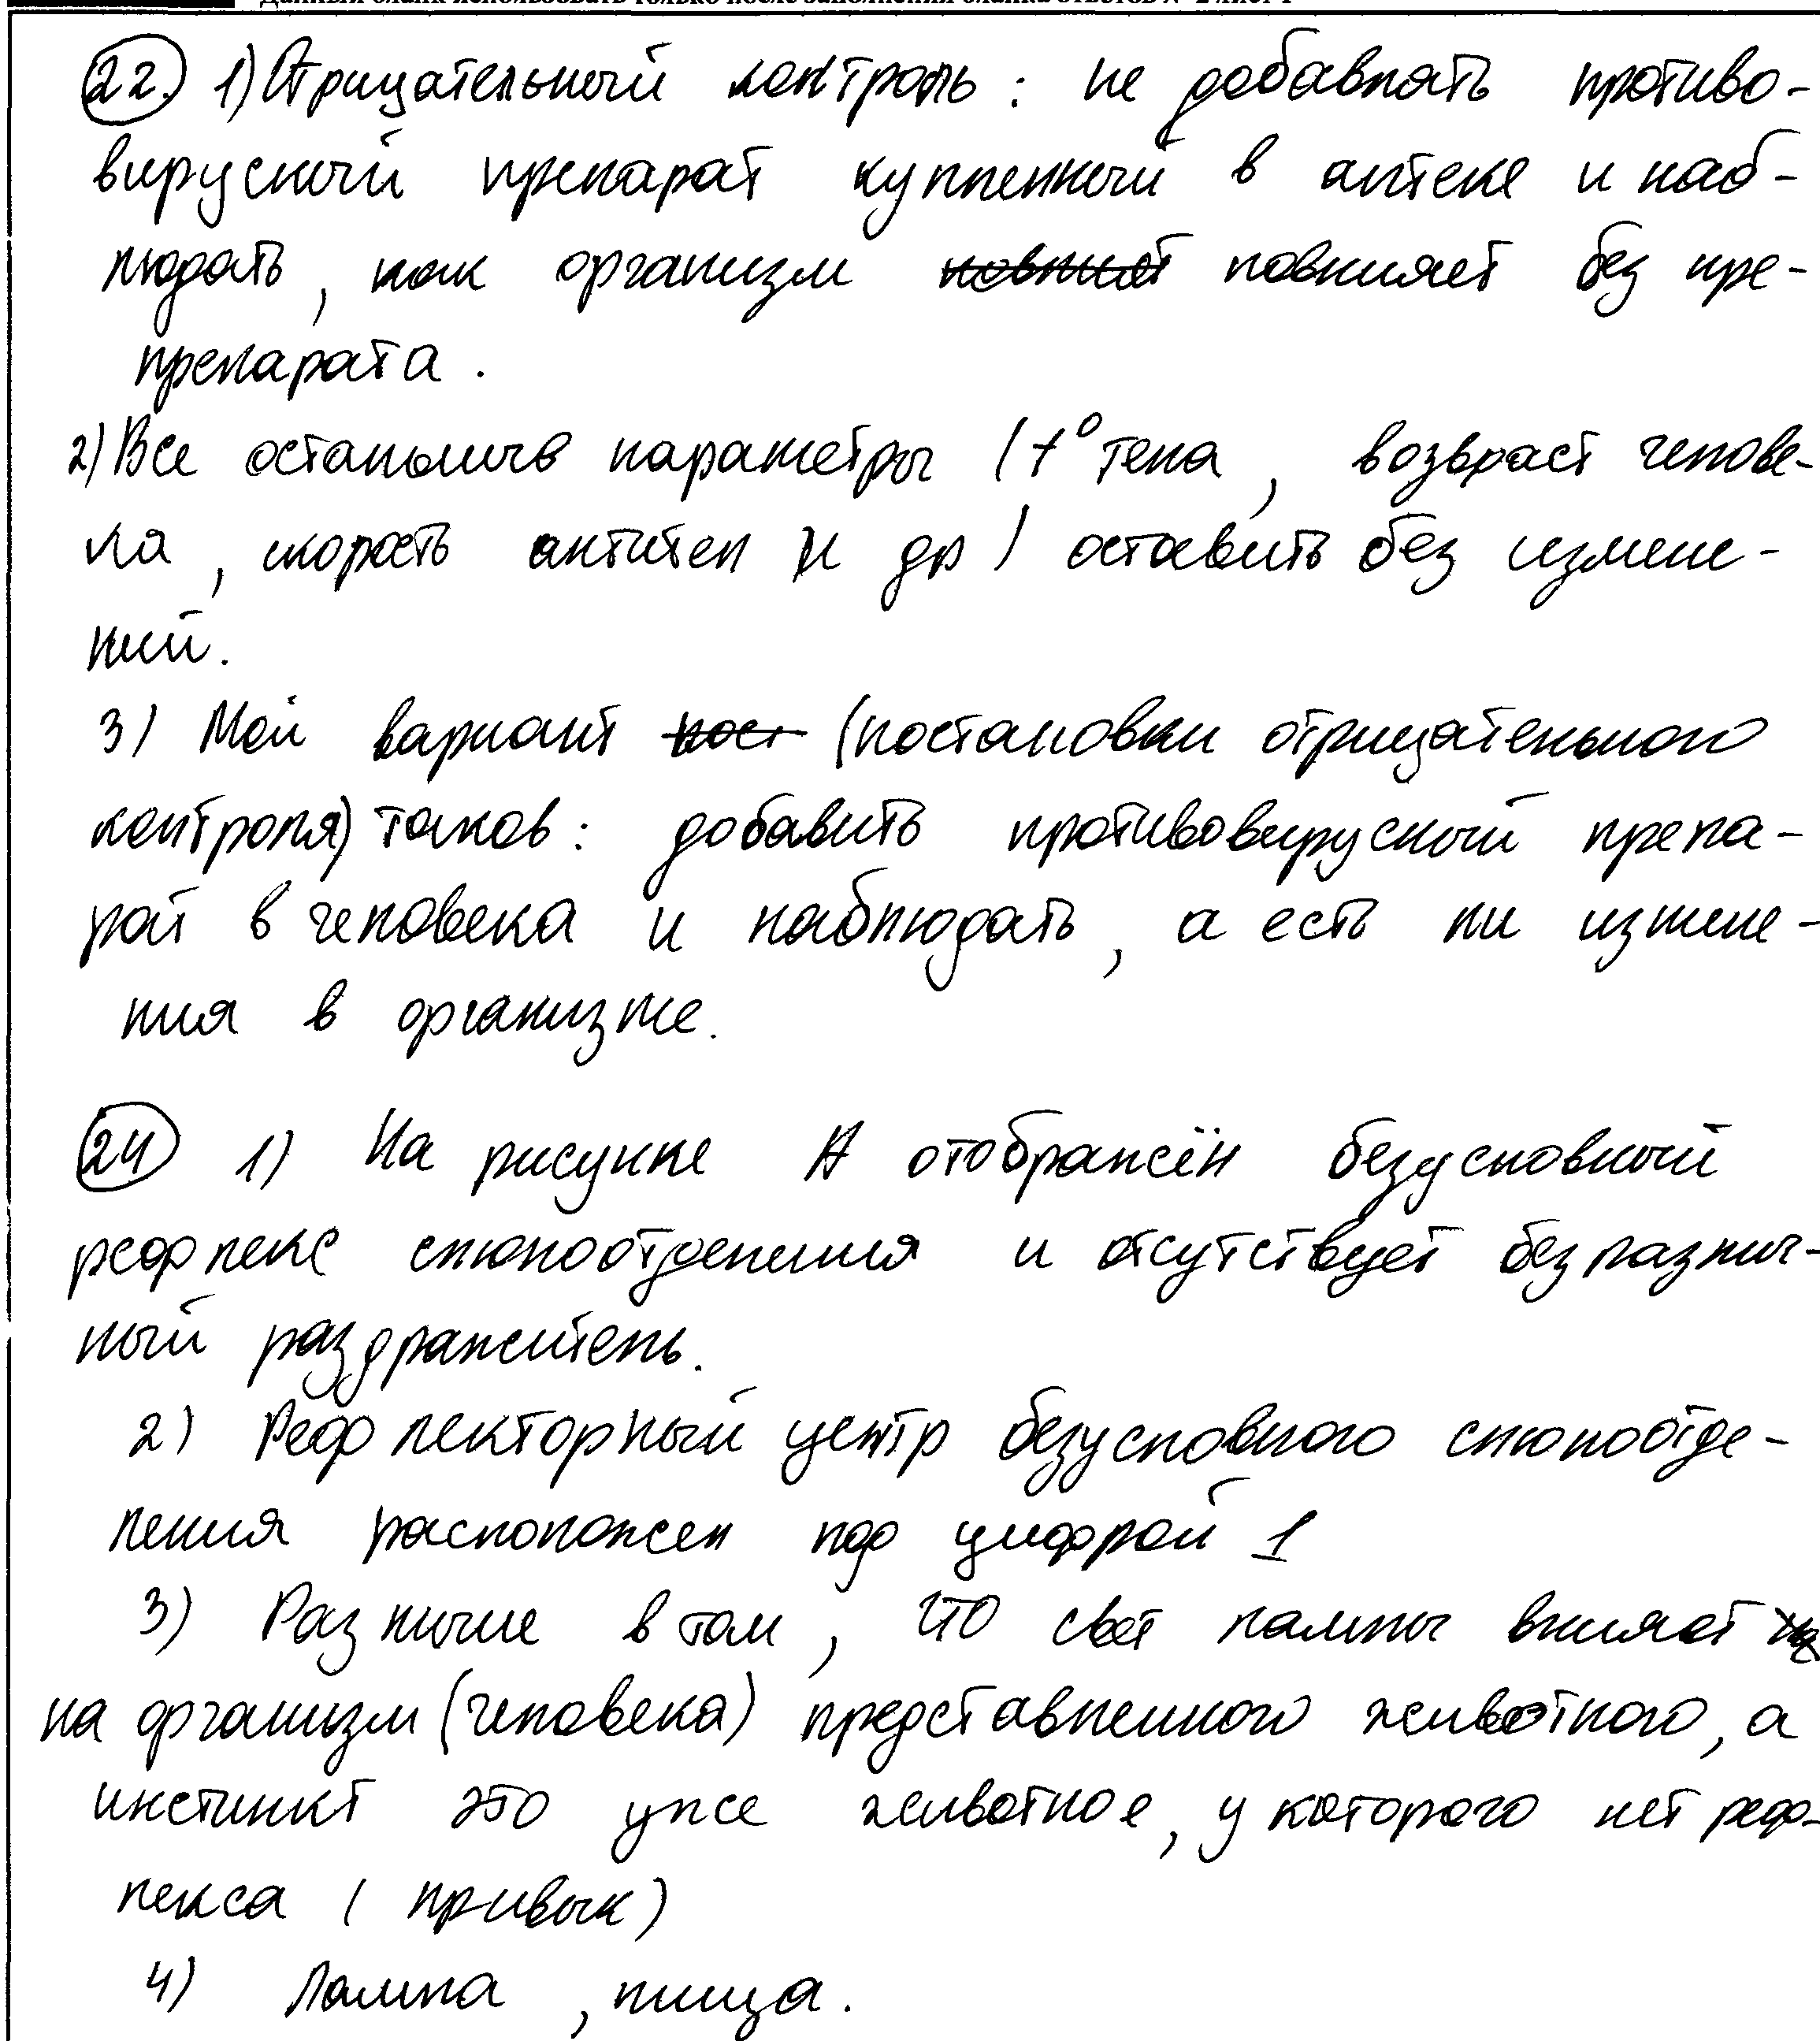 Данный бланк использовать только после заполнения бланка ответов № 2 лист 1
22. 1) Отрицательный контроль: не добавлять противо-
вирусный препарат купленный в аптеке и наб-
людать, как организм повлияет без пре-
препарата.
2) Все остальные параметры (t° тела, возвраст челове-
ка, скорость антител и др) оставить без измене-
ний.
3) Мой вариант (постановки отрицательного
контроля) таков: добавить противовирусный препа-
рат в человека и наблюдать, а есть ли измене-
ния в организме.
24 1) На рисунке А отображён безусловный
рефлекс слюноотделения и отсутствует безразлич-
ный раздражитель.
2) Рефлекторный центр безусловного слюноотде-
ления расположен под цифрой 1
3) Различие в том, что свет лампы влияет
на организм (человека) представленного животного, а
инстинкт это уже животное, у которого нет реф-
лекса (привык)
4) Лампа, пища.